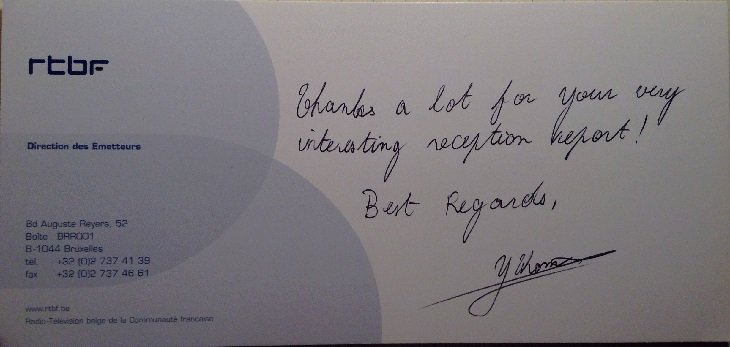 rtbf
Direction des Emetteurs
Bd Auguste Reyers, 52
Boîte BRR001
B-1044 Bruxelles
tel. +32 (0)2 737 41 39
fax +32 (0)2 737 46 61
www.rtbf.be
Radio-Télévision belge de la Communauté française
Thanks a lot for your very
interesting reception report!
Best Regards,